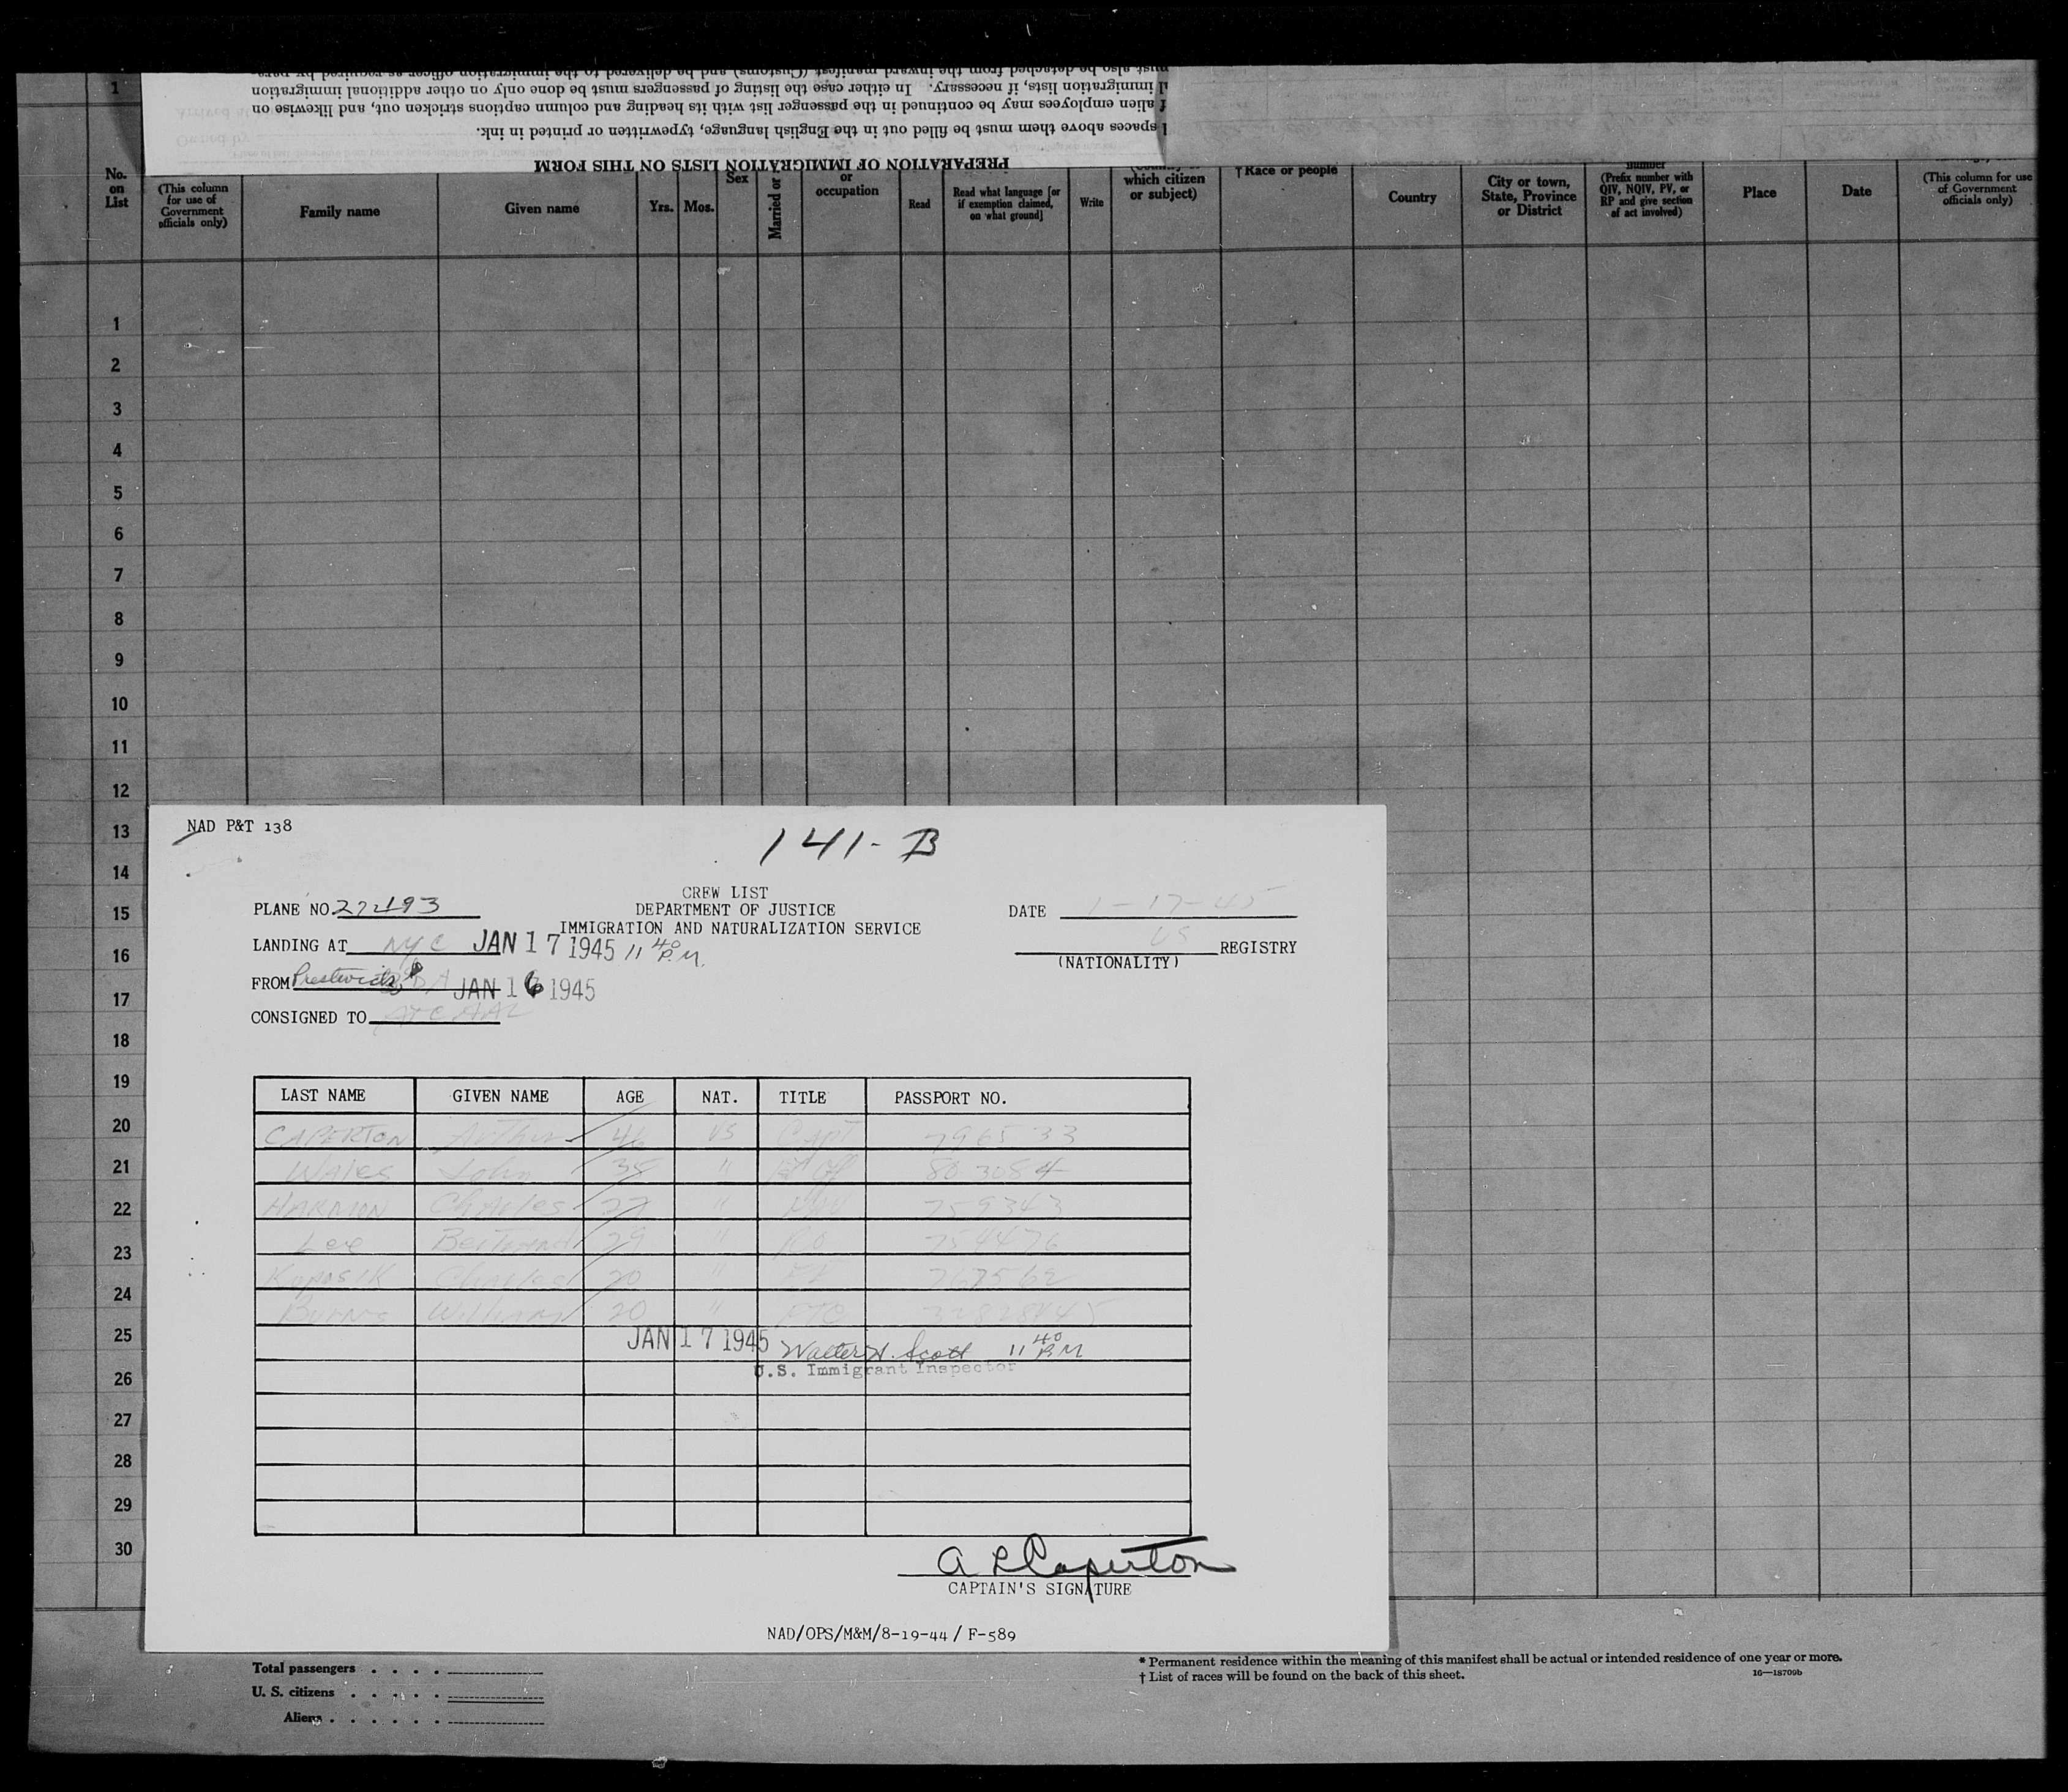 PREPARATION OF IMMIGRATION LISTS ON THIS FORM
spaces above them must be filled out in the English language, typewritten or printed in ink.
alien employees may be continued in the passenger list with its heading and column captions stricken out, and likewise on
immigration lists, if necessary. In either case the listing of passengers must be done only on other additional immigration
must also be detached from the inward manifest (Customs) and be delivered to the immigration officer as required by
1
No. on List
(This column for use of Government officials only)
Family name
Given name
Yrs.
Mos.
Sex
Married or
or occupation
Read
Read what language [or if exemption claimed, on what ground]
Write
which citizen or subject)
† Race or people
Country
City or town, State, Province or District
number (Prefix number with QIV, NQIV, PV, or RP and give section of act involved)
Place
Date
(This column for use of Government officials only)
1
2
3
4
5
6
7
8
9
10
11
12
13
14
15
16
17
18
19
20
21
22
23
24
25
26
27
28
29
30
NAD P&T 138
141-B
CREW LIST
PLANE NO. 272193 DEPARTMENT OF JUSTICE DATE 1-17-45
IMMIGRATION AND NATURALIZATION SERVICE
LANDING AT NYC JAN 17 1945 11 40 P.M. US REGISTRY
(NATIONALITY)
FROM Prestwick JAN 16 1945
CONSIGNED TO ATC AAL
LAST NAME GIVEN NAME AGE NAT. TITLE PASSPORT NO.
CAPERTON Arthur 46 US Capt 796533
Wales John 35 " 803084
HARMON Charles 27 " 759343
Lee Bertrand 29 " RO 754476
Charles 20 " 767562
Burns William 20 " 32828445
JAN 17 1945 Walter H. Scott 11 40 P.M
U.S. Immigrant Inspector
A L Caperton
CAPTAIN'S SIGNATURE
NAD/OPS/M&M/8-19-44 / F-589
Total passengers . . . .
U. S. citizens . . . . .
Aliens . . . . . .
* Permanent residence within the meaning of this manifest shall be actual or intended residence of one year or more.
† List of races will be found on the back of this sheet. 16—18709b